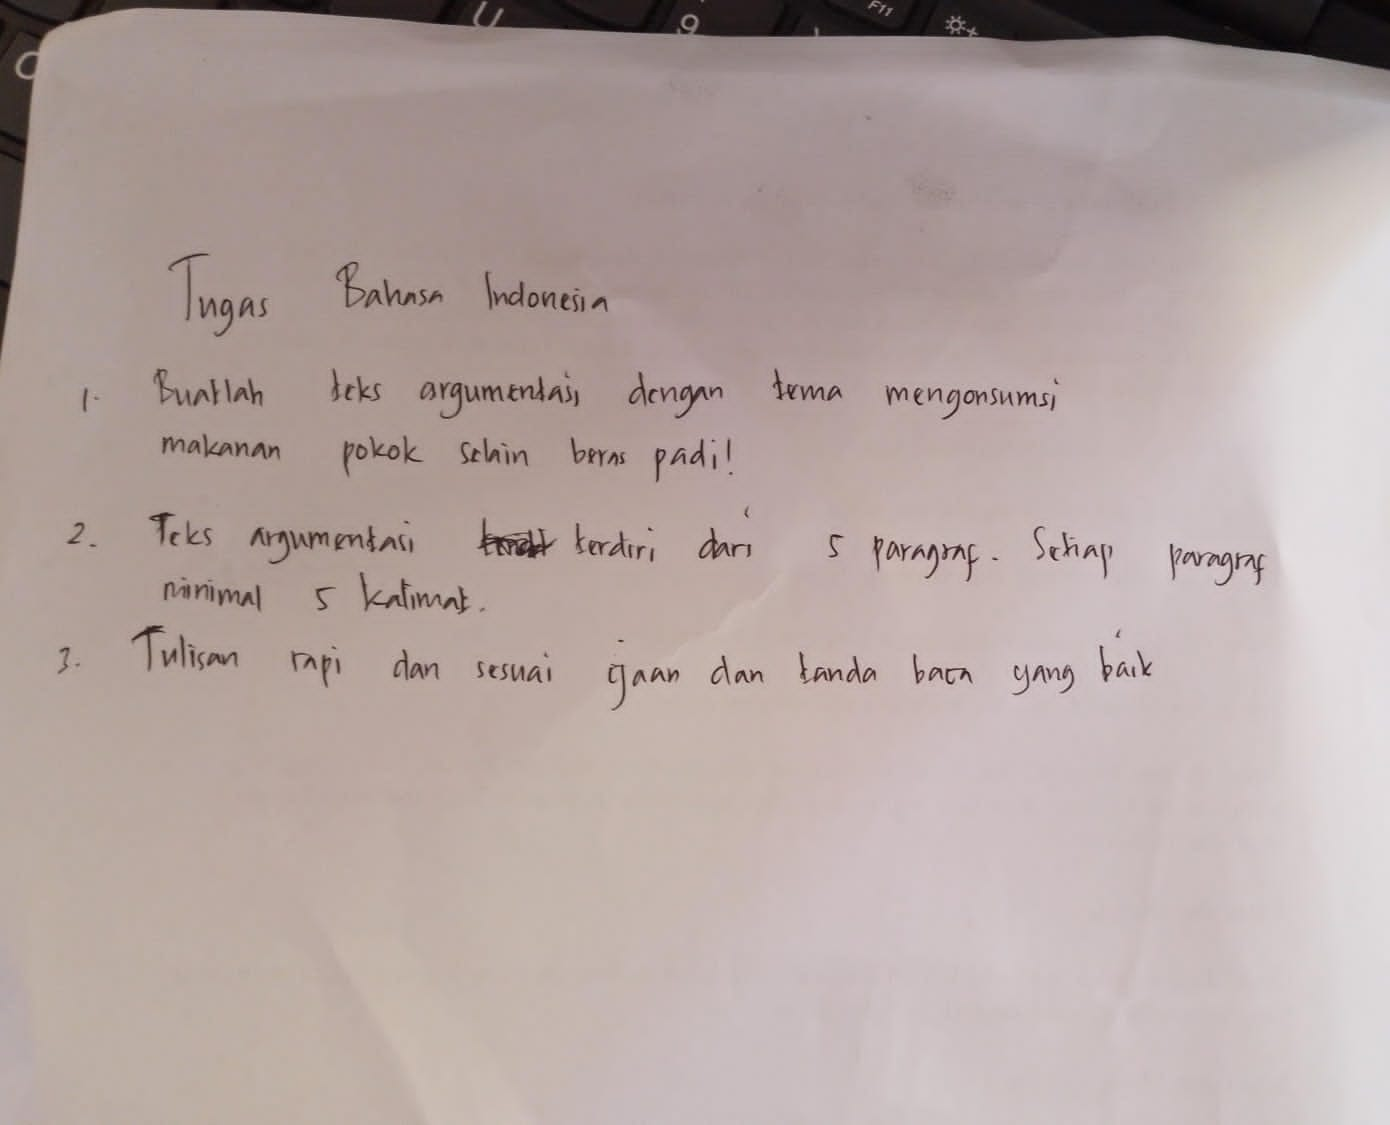 U 9 F11
C
Tugas Bahasa Indonesia
1. Buatlah teks argumentasi dengan tema mengonsumsi
makanan pokok selain beras padi!
2. Teks argumentasi terdiri dari 5 paragraf. Setiap paragraf
minimal 5 kalimat.
3. Tulisan rapi dan sesuai ejaan dan tanda baca yang baik